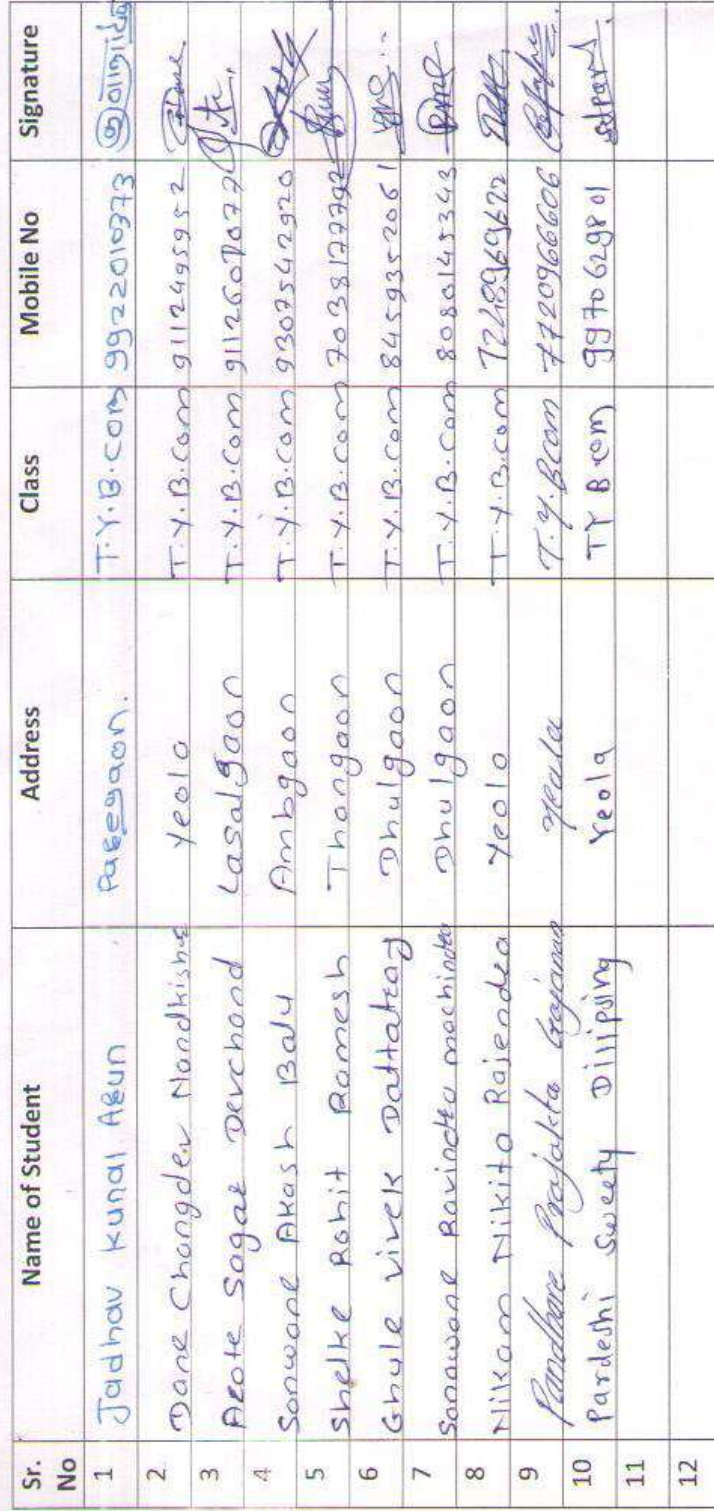 Sr. No Name of Student Address Class Mobile No Signature
1 Jadhav Kunal Arun Paregaon. T.Y.B.com 9922010373
2 Dane Changdev Nandkishor Yeola T.Y.B.com 9112495952
3 Arote Sagar Devchand Lasalgaon T.Y.B.com
4 Sonwane Akash Balu Ambgaon T.Y.B.com 9307542920
5 Shelke Rohit Ramesh Thangaon T.Y.B.com
6 Ghule Vivek Dattatray Dhulgaon T.Y.B.com 8459352061
7 Sonawane Ravindra machindra Dhulgaon T.Y.B.com 8080145343
8 Nikam Nikita Rajendra Yeola T.Y.B.com
9 Pandhare Prajakta Gajanan Yeola T.Y.Bcom 7720966606
10 Pardeshi Sweety Dilipsing Yeola TY B.com 9970629801
11
12